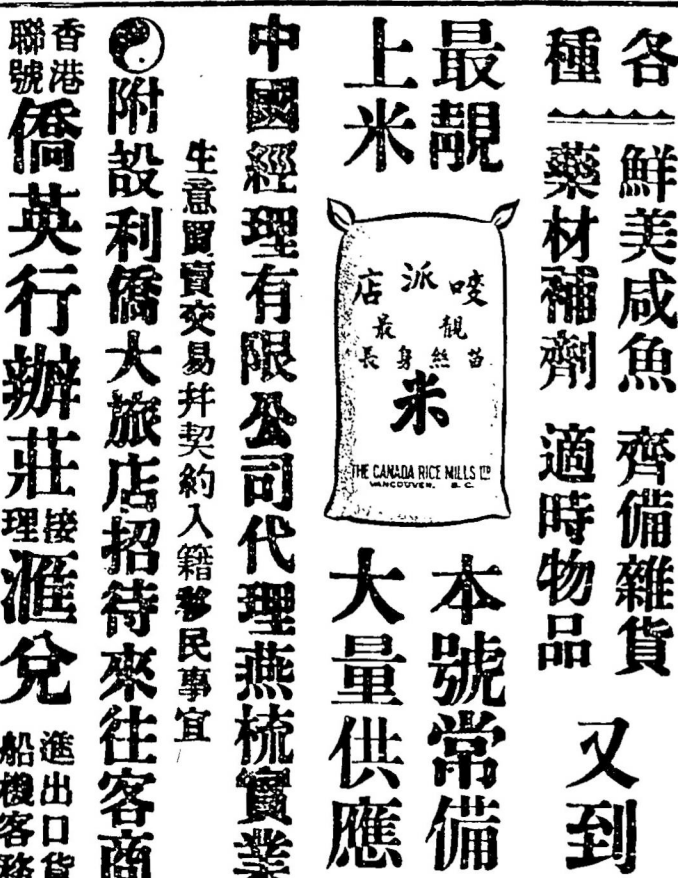 各種
鮮美咸魚
藥材補劑
齊備雜貨
適時物品
又到
最靚
上米
店派
最靚
長身絲苗
米
THE CANADA RICE MILLS LTD
VANCOUVER, B.C.
本號常備
大量供應
中國經理有限公司代理燕梳實業
生意買賣交易并契約入籍移民事宜
附設利僑大旅店招待來往客商
香港聯號僑英行辦莊接理滙兌
進出口貨
船機客務